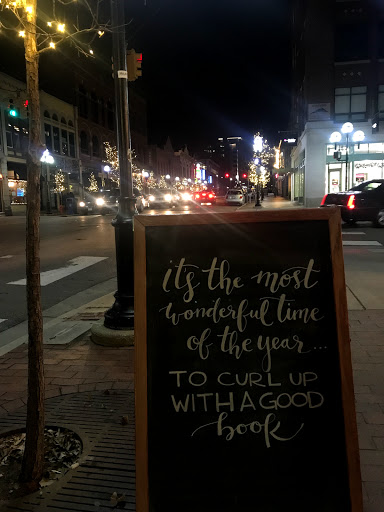 it's the most
wonderful time
of the year...
TO CURL UP
WITH A GOOD
book